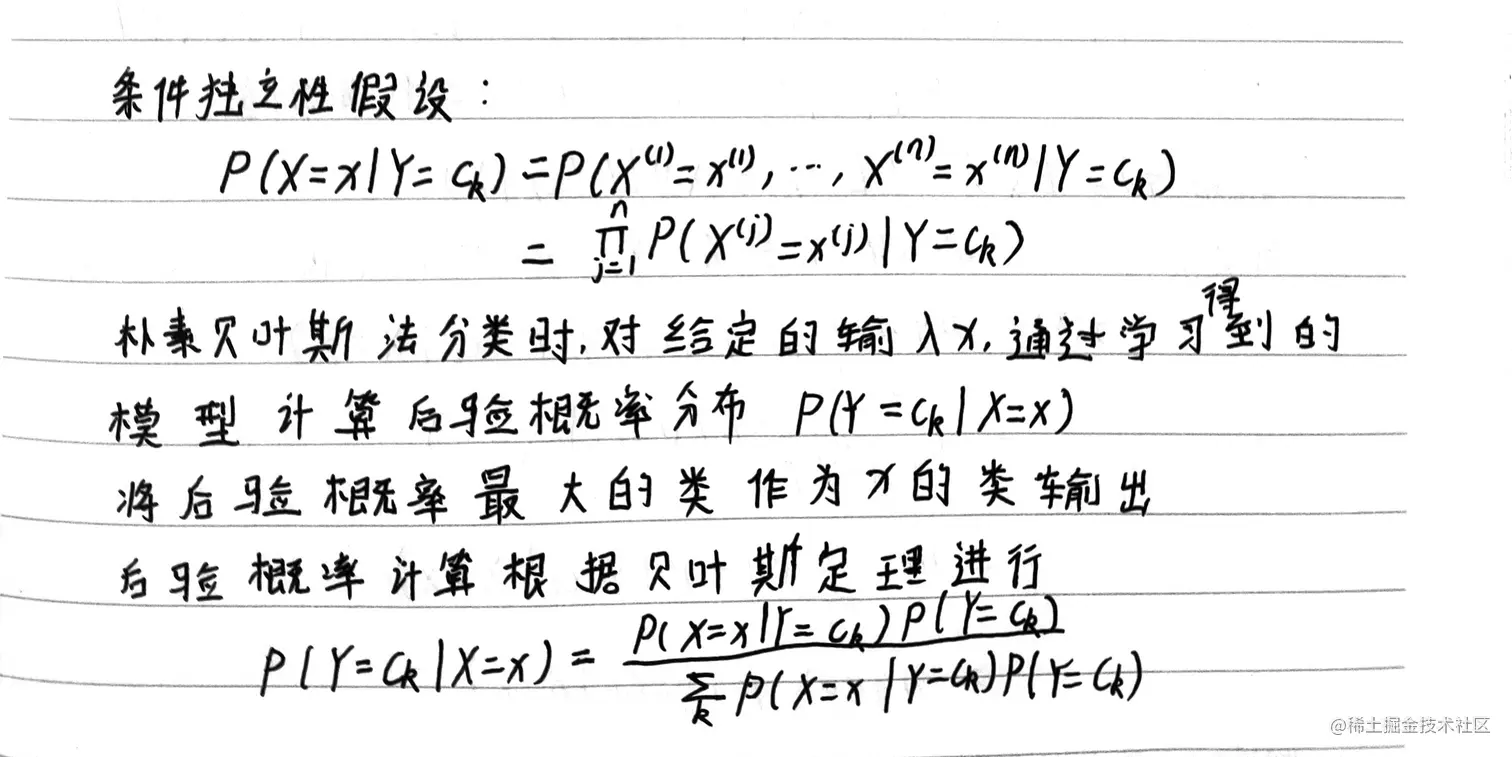 条件独立性假设：
P(X=x|Y=cₖ)=P(X⁽¹⁾=x⁽¹⁾,⋯,X⁽ⁿ⁾=x⁽ⁿ⁾|Y=cₖ)
=∏ⁿⱼ₌₁P(X⁽ʲ⁾=x⁽ʲ⁾|Y=cₖ)
朴素贝叶斯法分类时,对给定的输入x,通过学习得到的
模型计算后验概率分布 P(Y=cₖ|X=x)
将后验概率最大的类作为x的类输出
后验概率计算根据贝叶斯定理进行
P(Y=cₖ|X=x)=\frac{P(X=x|Y=cₖ)P(Y=cₖ)}{∑ₖP(X=x|Y=cₖ)P(Y=cₖ)}
@稀土掘金技术社区